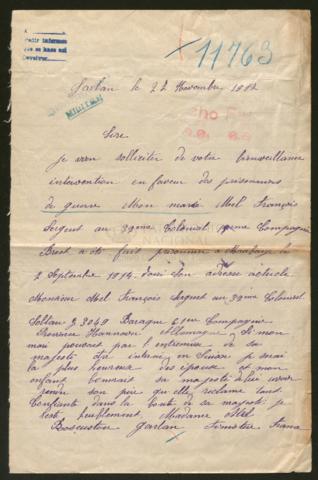 11763
Garlan le 22 Novembre 191
Sire
je vien solliciter de votre bienveillance
intervention en faveur des prisonniers
de guerre Mon mari Abel François
Sergent au 32eme Colonial Compagnie
Brest a été fait prisonnier a Maubeuge le
2 Septembre 1914 dont son adresse actuele
Monsieur Abel François sergent au 32eme Colonial
3049 Baraque 6 Compagnie
Province Hannover Allemagne Si mon
mari pouvait par l'entremise de sa
majesté être interné en Suisse je serai
la plus heureuse des épouses et mon
enfant sa majesté
son père qu'elle réclame tant
Confiante dans la bonté de sa majesté je
reste humblement Madame Abel
Garlan Finistère France